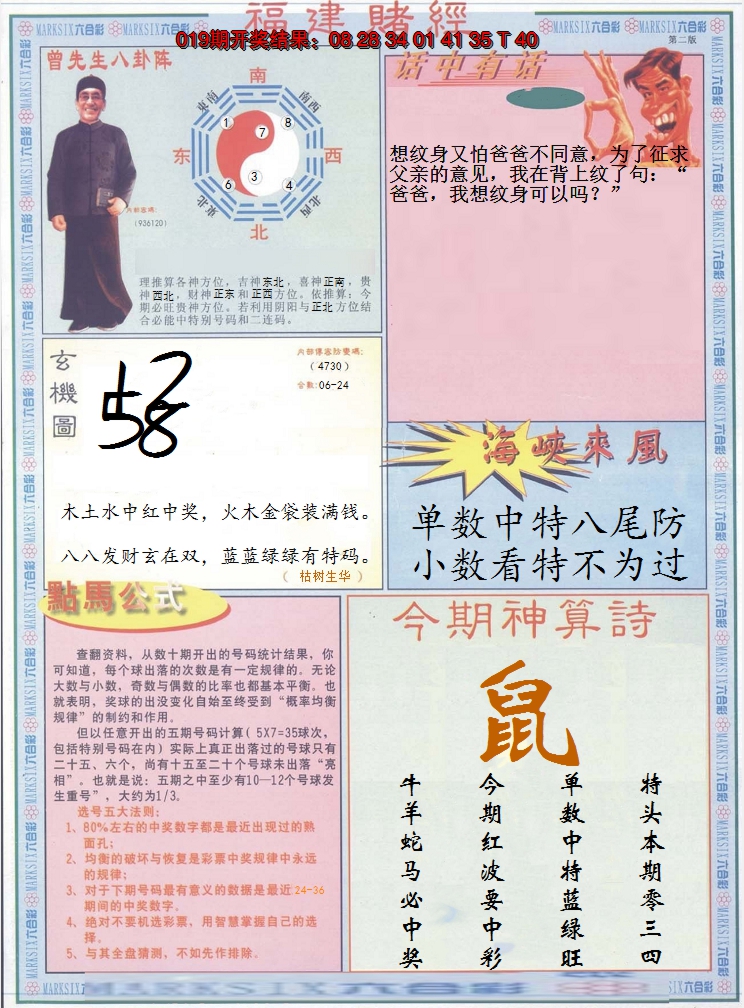 福建賭經
019期开奖结果：08 28 34 01 41 35 T 40
第二版
MARKSIX六合彩
曾先生八卦阵
南
东南
南西
东
西
東北
北西
北
1
7
8
6
3
4
(936120)
理推算各神方位，吉神东北，喜神正南，贵
神西北，财神正东和正西方位。依推算：今
期必旺贵神方位。若利用阴阳与正北方位结
合必能中特别号码和二连码。
话中有话
想纹身又怕爸爸不同意，为了征求
父亲的意见，我在背上纹了句：“
爸爸，我想纹身可以吗？”
玄機圖
(4730)
合数:06-24
58
木土水中红中奖，火木金袋装满钱。
八八发财玄在双，蓝蓝绿绿有特码。
（枯树生华）
海峡來風
单数中特八尾防
小数看特不为过
點馬公式
查翻资料，从数十期开出的号码统计结果，你
可知道，每个球出落的次数是有一定规律的。无论
大数与小数，奇数与偶数的比率也都基本平衡。也
就表明，奖球的出没变化自始至终受到“概率均衡
规律”的制约和作用。
但以任意开出的五期号码计算( 5X7=35球次，
包括特别号码在内)实际上真正出落过的号球只有
二十五、六个，尚有十五至二十个号球未出落“亮
相”。也就是说：五期之中至少有10—12个号球发
生重号”，大约为1/3。
选号五大法则:
1、80%左右的中奖数字都是最近出现过的熟
面孔;
2、均衡的破坏与恢复是彩票中奖规律中永远
的规律;
3、对于下期号码最有意义的数据是最近24-36
期间的中奖数字。
4、绝对不要机选彩票，用智慧掌握自己的选
择。
5、与其全盘猜测，不如先作排除.
今期神算詩
鼠
特头本期零三四
单数中特蓝绿旺
今期红波要中彩
牛羊蛇马必中奖